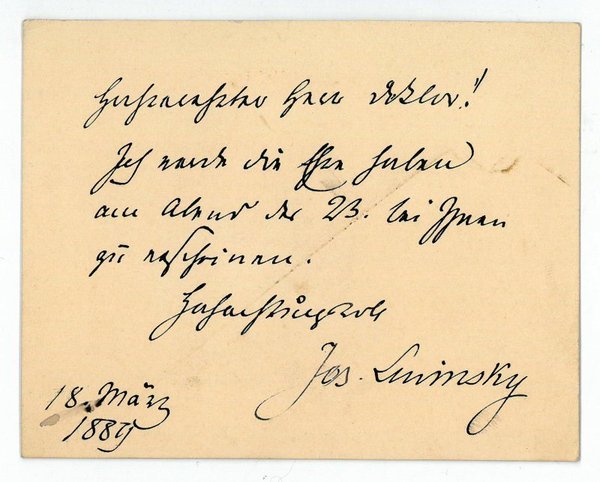 Hochverehrter Herr Doktor!
Ich werde die Ehre haben
am Abend des 23. bei Ihnen
zu erscheinen.
Hochachtungsvoll
Jos. Lewinsky
18. März
1889